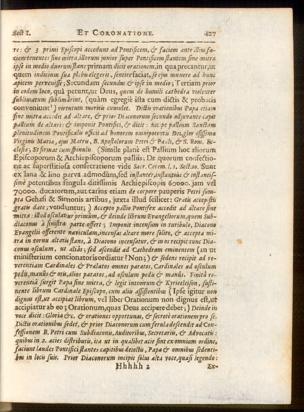 Sect 1. ET CORONATIONE. 427
re: & 3 primi Episcopi accedunt ad Pontificem, & faciem ante illius faciem
tenentes: sine mitra, illorum junior super Pontificem stantem sine mitra
ipse in medio duorum stans: primam dicit orationem, in qua precantur, ut
quem indicium sua plebi elegerit, sentiri faciat, se ejus munere ad hunc
apicem pervenisse; Secundam secundus & ipse in medio; Tertiam prior
in ordem loco, quâ petunt, ut Deus, quem de humili cathedra violenter
sublimatum sublimârint, (quàm egregiè ista cum dictis & probatis
conveniunt!) virtutum meritis cumulet. Dictis orationibus Papa etiam
sine mitra accedit ad altare, & prior Diaconorum secundo adjuvante capit
pallium de altari: & imponit Pontifici, & dicit: Accipe pallium sanctum
plenitudinem Pontificalis officii ad honorem omnipotentis Dei, glor issima
Virginis Maria, ejus Matris, B. Apostolorum Petri & Pauli, & S. Rom. Ecclesia,
& firmat cum spinulis. (Simile planè est Pallium hoc aliorum
Episcoporum & Archiepiscoporum palliis. De quorum confectione
ac superstitiosa consecratione vide Sacr. Cerem. l. 1, sect. 10. Sunt
ex lana & lino parva admodum, sed instanter instantiùs & instantissimè
petentibus singulis ditissimis Archiepiscopis 60000. jam vel
70000. ducatorum, aut carius etiam de corpore pauperis Petri sempra
Gehasi & Simonis artibus, juxta illud scilicet: Gratis accepistis
gratis date; venduntur;) Accepto pallio Pontifex accedit ad altare sine
mitra: illud osculatur primùm, & deinde librum Evangeliorum, quem Subdiaconus
à sinistra parte offert; Imponit incensum in turibulo, Diacono
Evangelii offerente naviculam, incensat altare more solito, & accepta mitra
in cornu altaris stans, à Diacono incensatur, & in os recipit tum Diaconum
osculum, ut aliàs: sed ascendit ad Cathedram eminentem (an ut
ministerium concionatoris ordiatur? Non;) & sedens recipit ad reverentiam
Cardinales & Prelatos omnes paratos, Cardinales ad osculum
pedis, manûs & oris, alios paratos, ad osculum pedis & manûs. Finitâ reverentiâ
surgit Papa sine mitra, & legit introitum & Kyrieeleison, sustinente
librum Cardinale Episcopo, cum aliis assistentibus (Ipse igitur non
dignus est, ut accipiat librum, vel liber Orationum non dignus est, ut
accipiatur ab eo; Orationum, quas Deus accipere debet;) Deinde in
voce dicit: Gloria &c. & orationes opportunas, & secretè orationem pro se.
Dictis orationibus sedet, & prior Diaconorum cum ferula descendit ad Confessionem
B. Petri cum Subdiaconis, Auditoribus, Secretariis, & Advocatis:
quibus in 2. acies distributis, ita ut in qualibet acie sint ex omnium ordine,
faciunt laudes Pontifici stantes capitibus detectis, Papa & omnibus sedentibus
in locis suis. Prior Diaconorum incipit solus alta voce, quasi legendo:
Hhhhh 2 Ex-